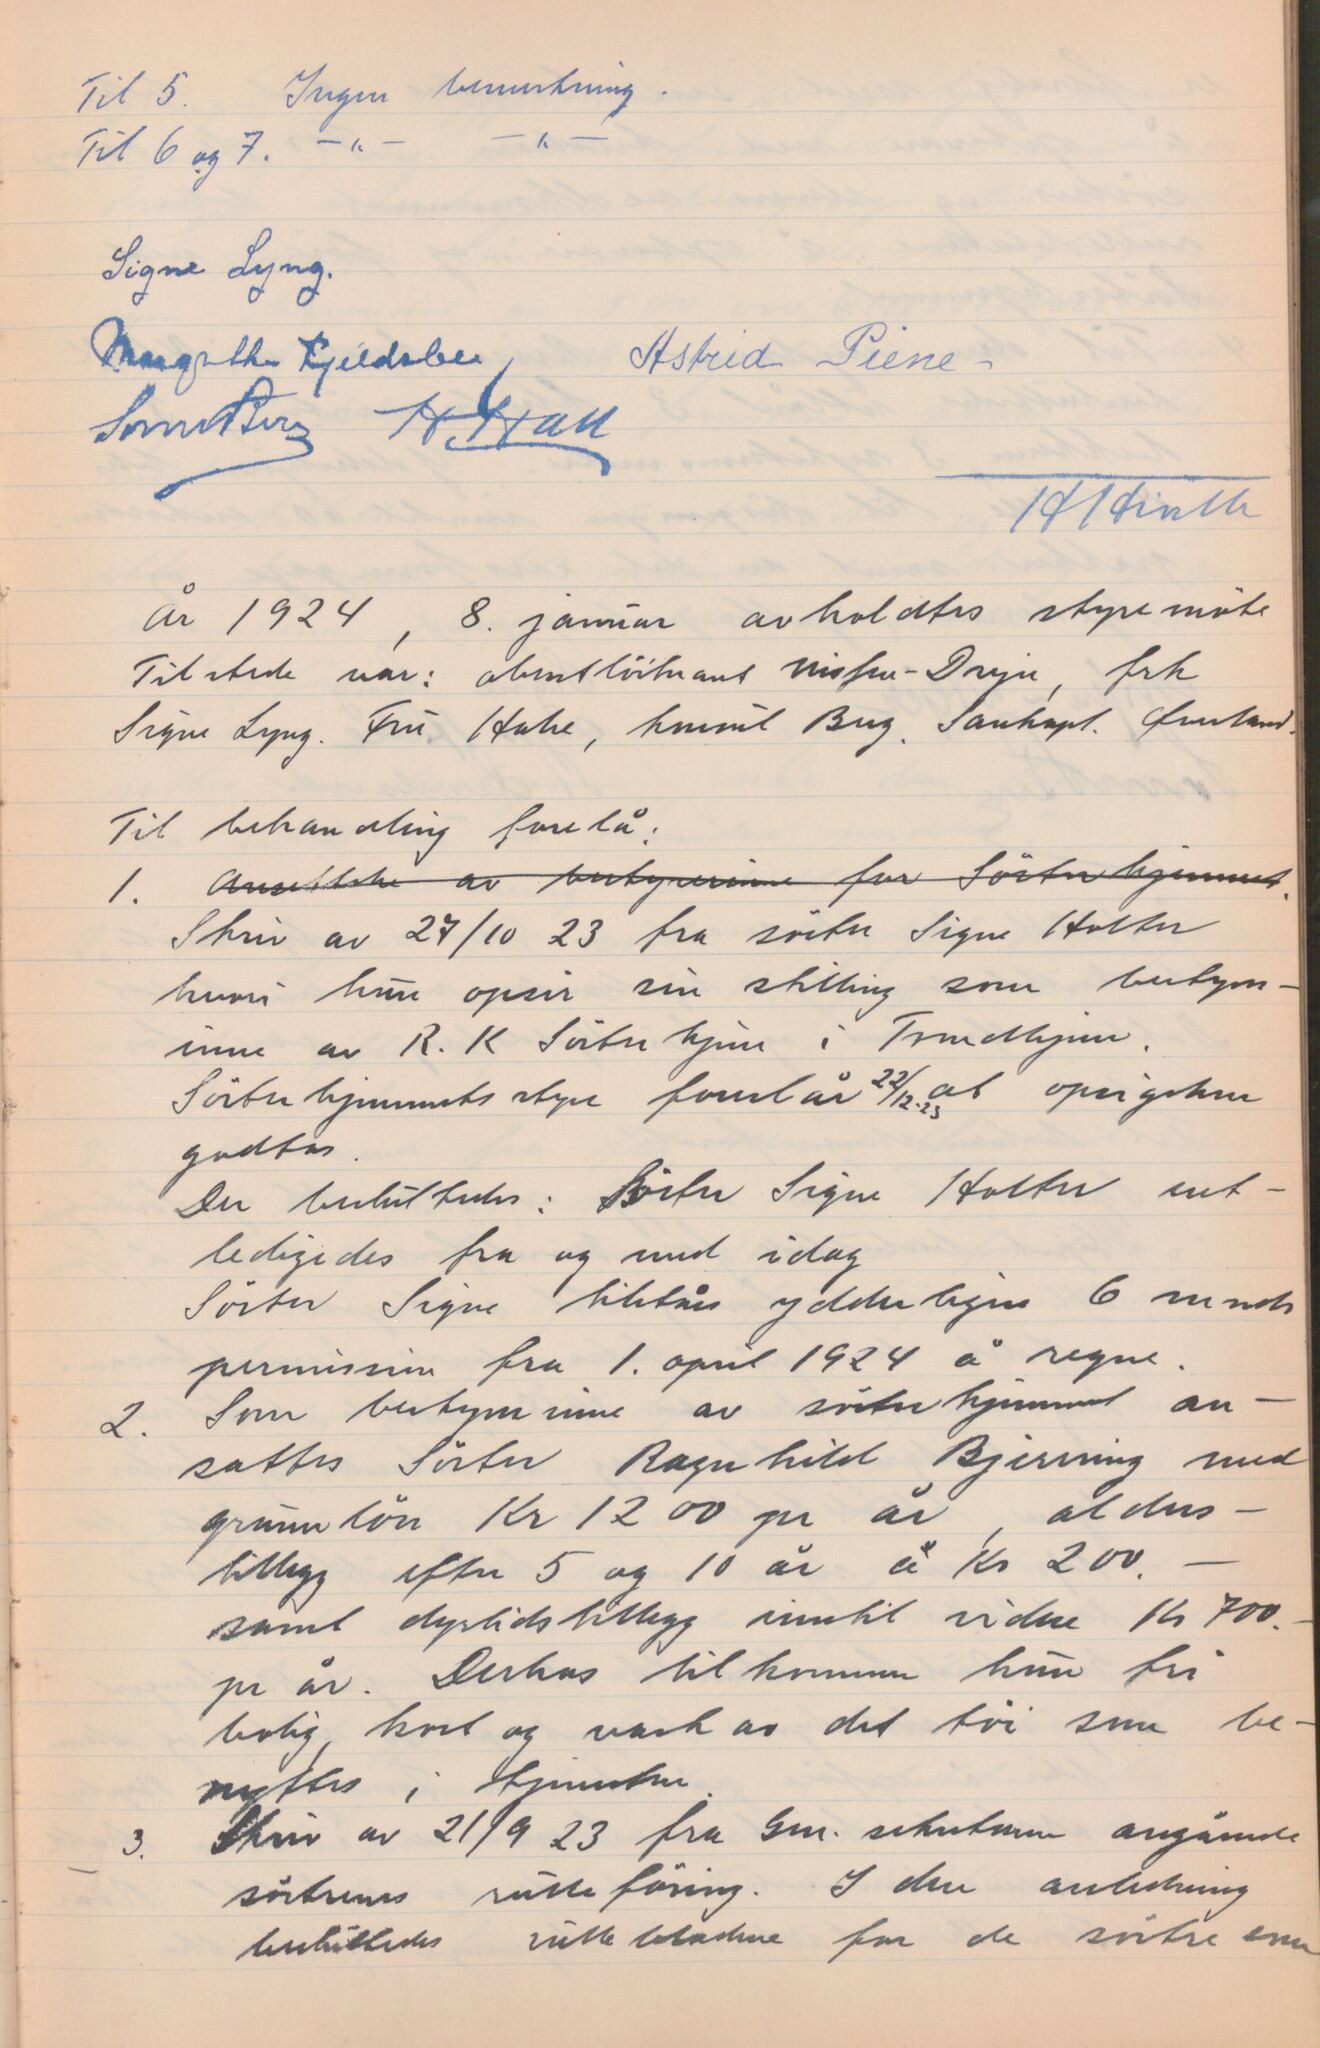 Til 5. Ingen bemerkning.
Til 6 og 7. -"- -"-
Signe Lyng.
Margrethe Kjeldsberg Astrid Piene
År 1924, 8. januar avholdtes styremöte
Tilstede var: oberstlöitnant Nissen-Dreyer, frk
Signe Lyng. Fru Hahe, konsul Bug. Sankapt. Överland.
Til behandling forelå:
1. Ansettelse av bestyrerinne for Sösterhjemmet.
Skriv av 27/10 23 fra söster Signe Holter
hvori hun opsir sin stilling som bestyrer-
inne av R. K Sösterhjem i Trondhjem.
Sösterhjemmets styre foreslår 22/12-23 at opsigelsen
godtas.
Der besluttedes: Söster Signe Holter ent-
ledigedes fra og med idag
Söster Signe tilståes ydderligere 6 mnds
permission fra 1. april 1924 å regne.
2. Som bestyrerinne av sösterhjemmet an-
sattes Söster Ragnhild Bjerring med
grunnlön Kr 1200 pr år, alders-
tillegg efter 5 og 10 år á Kr 200.-
samt dyrtidstillegg inntil videre Kr 700.-
pr år. Derhos tilkommer hun fri
bolig, kost og vask av det töi som be-
nyttes i tjenesten.
3. Skriv av 21/9 23 fra Gen. sekretæren angående
söstrenes rulleföring. I den anledning
besluttedes rullebladene for de söstre som